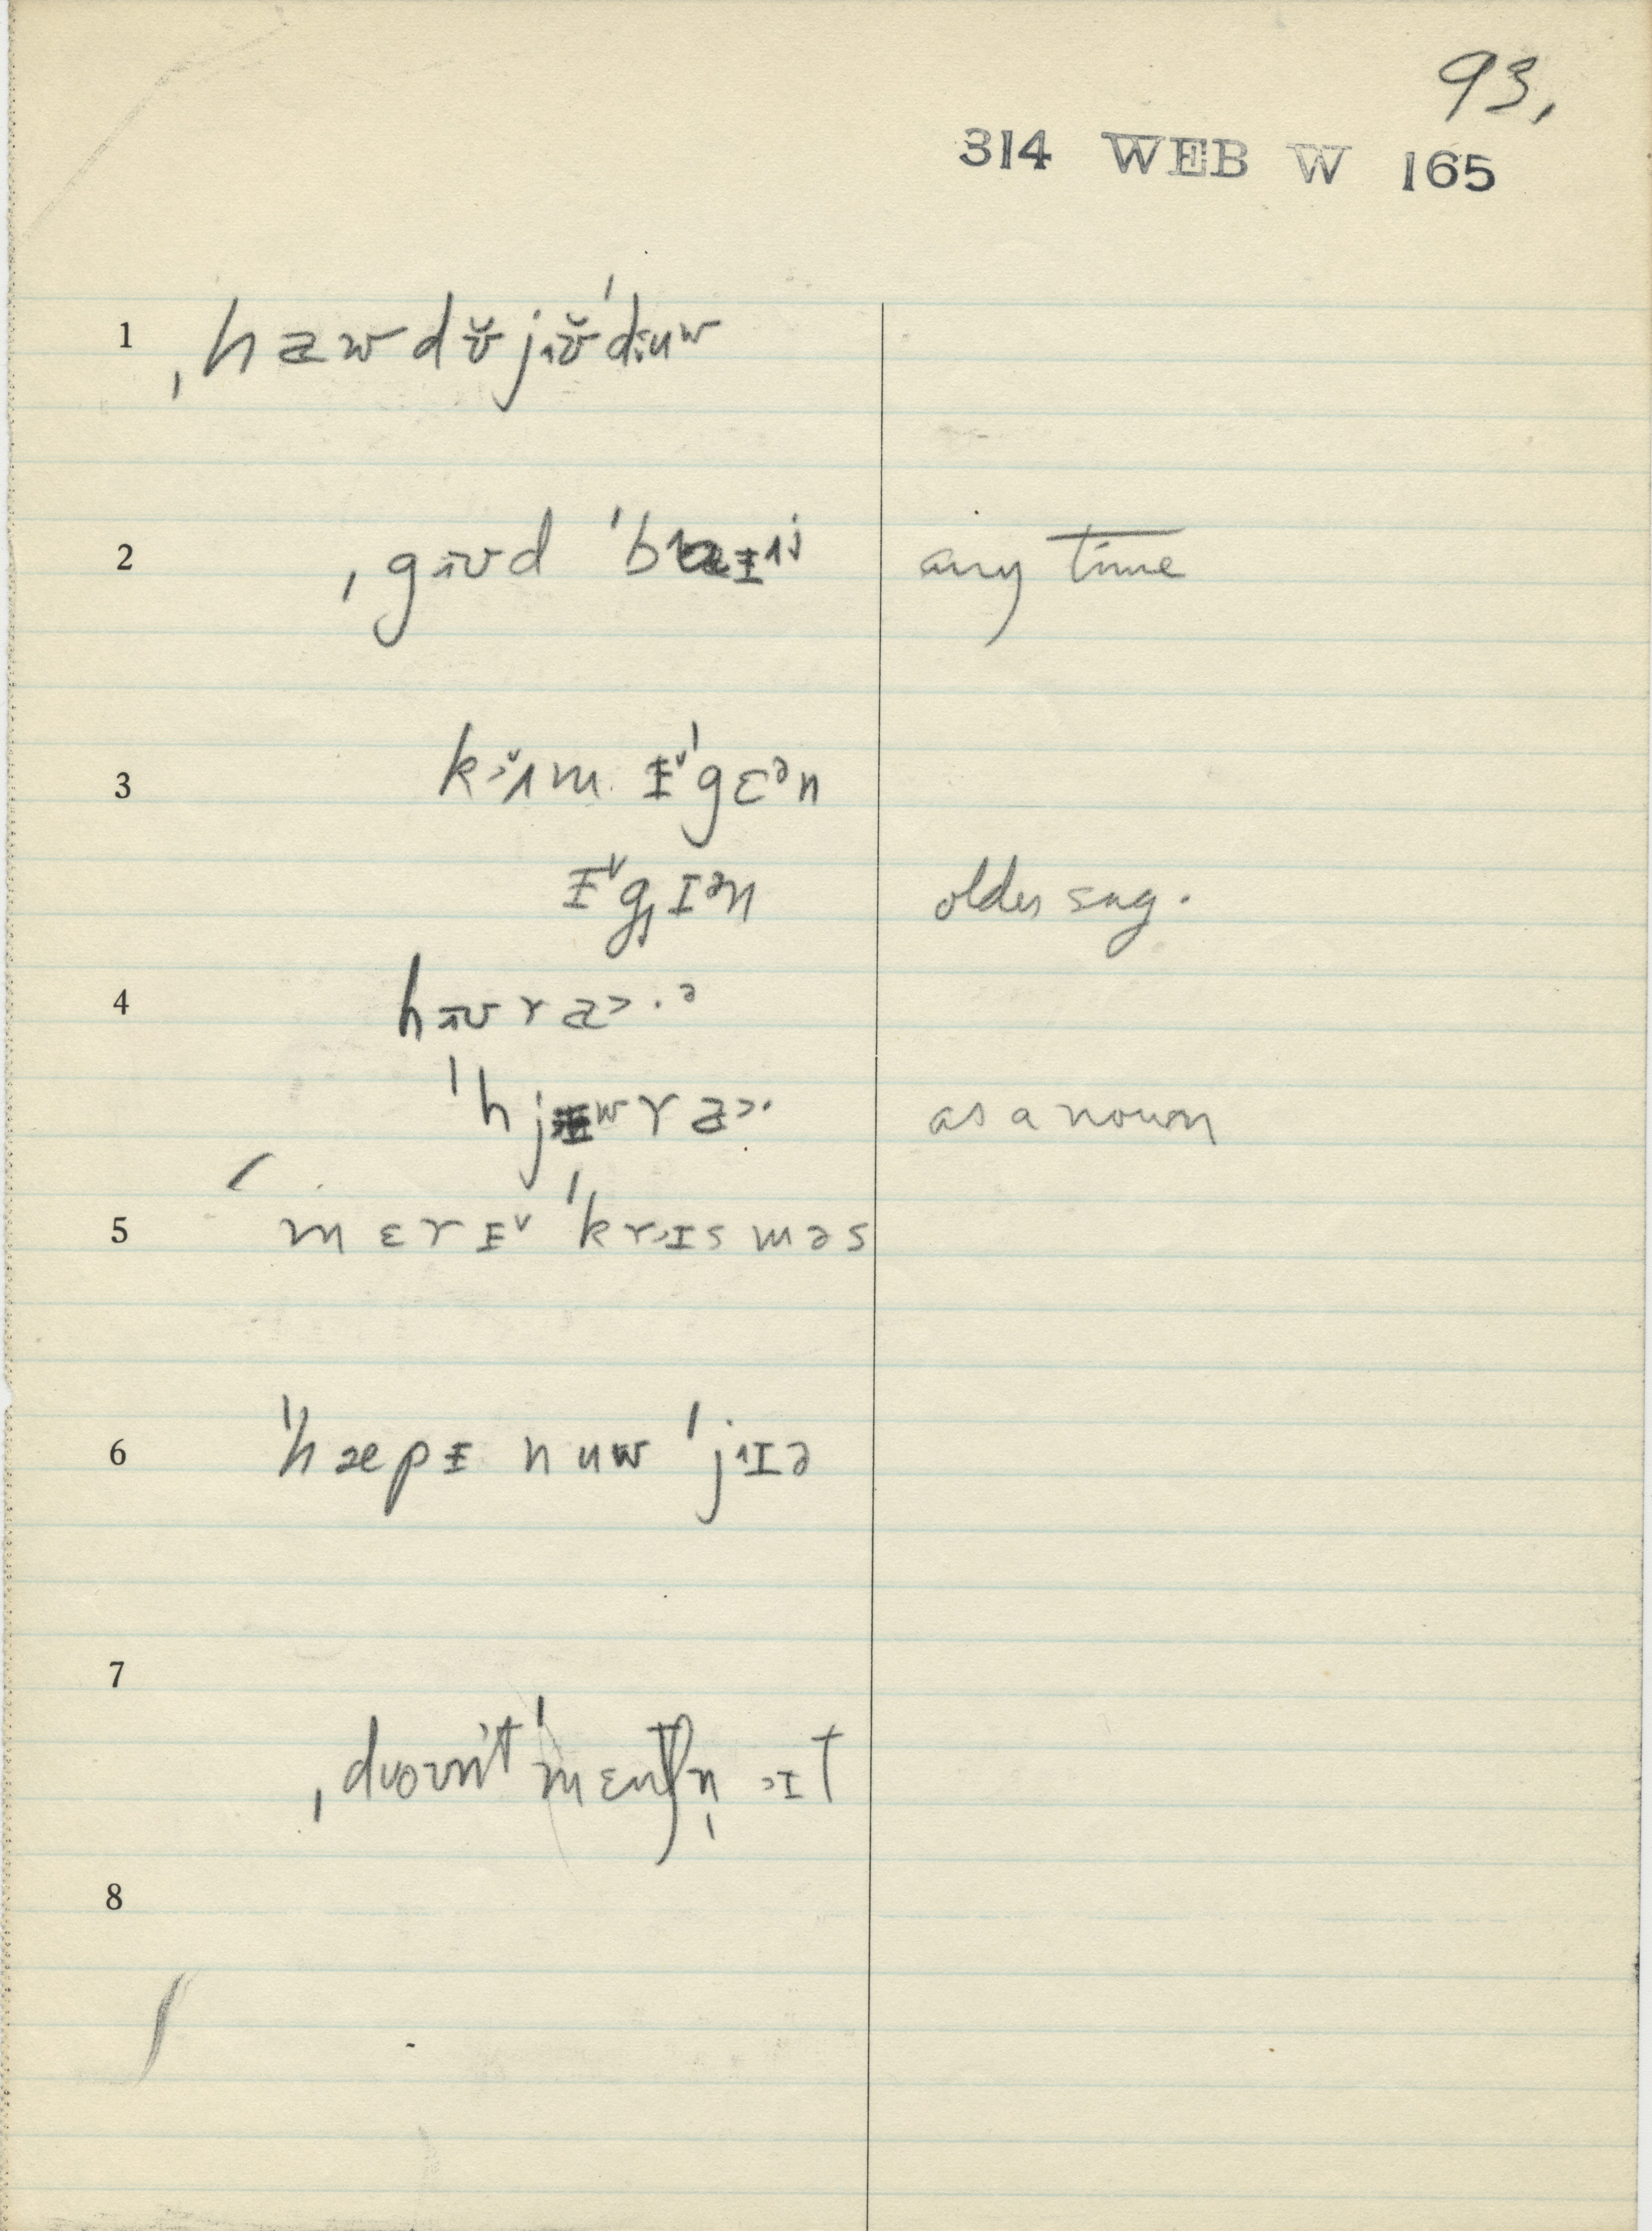 93,
314 WEB W 165
1 ˌhawdʊ̆jɪʊ̆ˈdɨuʷ
2 ˌgʊd ˈb any time
3 kɜ̆ɪm ɨ˅ˈgɛᵊn
ɨ˅gɪᵊn older sug.
4 hʊra˃·ᵊ
ˈhjʷra˃· as a noun
5 mɛrɨ˅ ˈkrɪsməs
6 ˈhæpɨ nuw ˈjɪə
7 ˌdoʊnt ˈmɛntʃn̩ ɪt
8